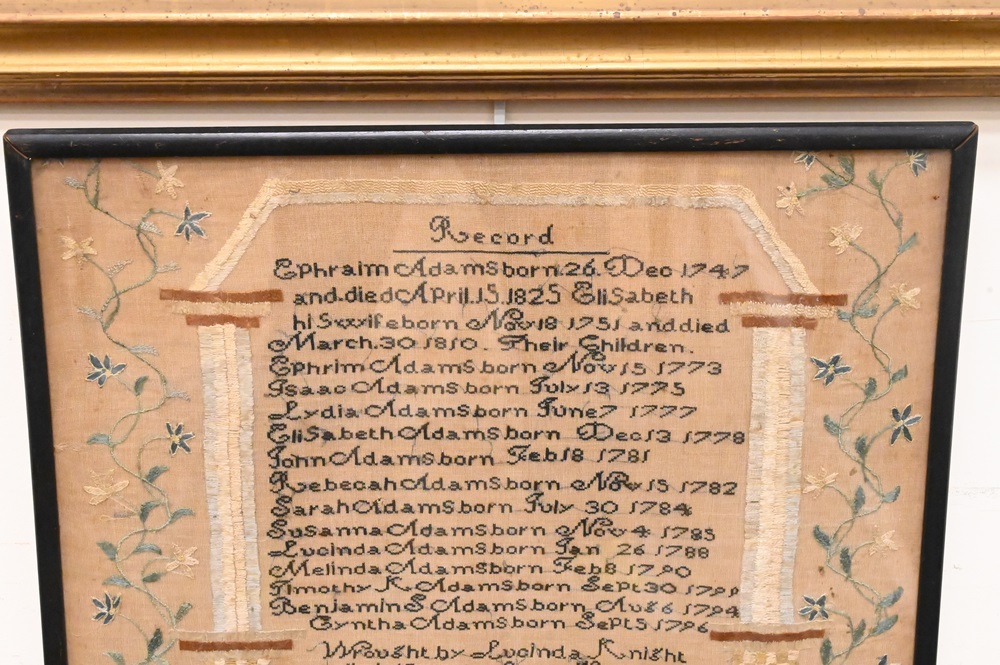 Record
Ephraim Adams born 26 Dec 1747
and died April 15 1825 Elisabeth
his wife born Nov 18 1751 and died
March. 30 1810. Their Children.
Ephrim Adams born Nov 15 1773
Isaac Adams born July 13 1775
Lydia Adams born June 7 1777
Elisabeth Adams born Dec 13 1778
John Adams born Feb 18 1781
Rebecah Adams born Nov 15 1782
Sarah Adams born July 30 1784
Susanna Adams born Nov 4 1785
Lucinda Adams born Jan 26 1788
Melinda Adams born Feb 8 1790
Timothy K Adams born Sept 30
Benjamin S Adams born Aug 6 1794
Cyntha Adams born Sept 5 1796
Wrought by Lucinda Knight